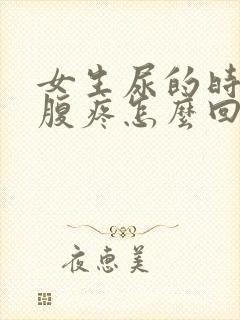 女生尿的時
腹疼怎麼回
夜恵美